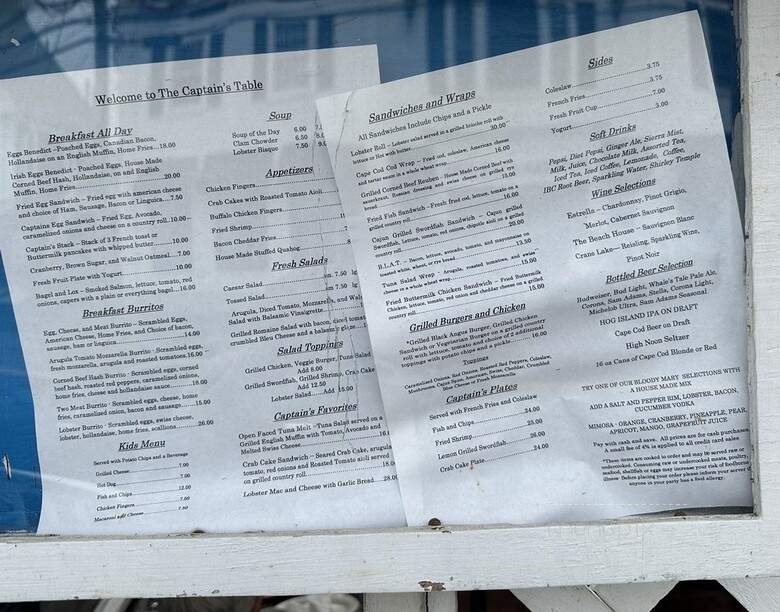 Welcome to The Captain's Table
Breakfast All Day
Eggs Benedict -Poached Eggs, Canadian Bacon,
Hollandaise on an English Muffin, Home Fries...18.00
Irish Eggs Benedict - Poached Eggs, House Made
Corned Beef Hash, Hollandaise, on and English
Muffin, Home Fries 20.00
Fried Egg Sandwich – Fried egg with american cheese
and choice of Ham, Sausage, Bacon or Linguica 7.50
Captains Egg Sandwich – Fried Egg, Avocado,
caramelized onions and cheese on a country roll. 10.00
Captain's Stack - Stack of 3 French toast or
Buttermilk pancakes with whipped butter....10.00
Cranberry, Brown Sugar, and Walnut Oatmeal ...7.00
Fresh Fruit Plate with Yogurt 10.00
Bagel and Lox – Smoked Salmon, lettuce, tomato, red
onions, capers with a plain or everything bagel...16.00
Breakfast Burritos
Egg, Cheese, and Meat Burrito – Scrambled Eggs,
American Cheese, Home Fries, and Choice of bacon,
sausage, ham or linguica 14.00
Arugula Tomato Mozzarella Burrito - Scrambled eggs,
fresh mozzarella, arugula and roasted tomatoes.16.00
Corned Beef Hash Burrito - Scrambled eggs, corned
beef hash, roasted red peppers, caramelized onions,
home fries, cheese and hollandaise sauce 18.00
Two Meat Burrito - Scrambled eggs, cheese, home
fries, caramelized onion, bacon and sausage......15.00
Lobster Burrito – Scrambled eggs, swiss cheese,
lobster, hollandaise, home fries, scallions 26.00
Kids Menu
Served with Potato Chips and a Beverage
Grilled Cheese 7.00
Hot Dog
Fish and Chips 12.00
Chicken Fingers 7.00
Macaroni and Cheese 7.50
Soup
Soup of the Day 6.00
Clam Chowder 6.50
Lobster Bisque 7.50
Appetizers
Chicken Fingers
Crab Cakes with Roasted Tomato Aioli
Buffalo Chicken Fingers
Fried Shrimp
Bacon Cheddar Fries
House Made Stuffed Quahog
Fresh Salads
Caesar Salad sm 7.50 lg
Tossed Salad sm 7.50 lg
Arugula, Diced Tomato, Mozzarella, and
Salad with Balsamic Vinaigrette
Grilled Romaine Salad with bacon, diced
crumbled Bleu Cheese and a balsamic
Salad Toppings
Grilled Chicken, Veggie Burger, Tuna Salad
Add 8.00
Grilled Swordfish, Grilled Shrimp, Crab Cake
Add 12.50
Lobster Salad....Add 15.00
Captain's Favorites
Open Faced Tuna Melt –Tuna Salad served on a
Grilled English Muffin with Tomato, Avocado and
Melted Swiss Cheese 16.0
Crab Cake Sandwich – Seared Crab Cake, arugula
tomato, red onions and Roasted Tomato aioli served
on grilled country roll 18.0
Lobster Mac and Cheese with Garlic Bread 28.0
Sandwiches and Wraps
All Sandwiches Include Chips and a Pickle
Lobster Roll – Lobster salad served in a grilled brioche roll with
lettuce or Hot with butter 30.00
Cape Cod Cod Wrap – Fried cod, coleslaw, American cheese
and tartar sauce in a whole wheat wrap 16.00
Grilled Corned Beef Reuben - House Made Corned Beef with
sauerkraut, Russian dressing and swiss cheese on grilled rye
bread 15.00
Fried Fish Sandwich –Fresh fried cod, lettuce, tomato on a
grilled country roll 16.00
Cajun Grilled Swordfish Sandwich – Cajun grilled
Swordfish, Lettuce, tomato, red onions, chipotle aioli on a grilled
country roll 20.00
B.L.A.T. – Bacon, lettuce, avocado, tomato, and mayonnaise on
toasted white, wheat, or rye bread 13.50
Tuna Salad Wrap – Arugula, roasted tomatoes, and swiss
cheese in a whole wheat wrap 15.00
Fried Buttermilk Chicken Sandwich – Fried Buttermilk
Chicken, lettuce, tomato, red onion and cheddar cheese on a grilled
country roll 15.00
Grilled Burgers and Chicken
*Grilled Black Angus Burger, Grilled Chicken
Sandwich or Vegetarian Burger on a grilled country
roll with lettuce, tomato and choice of 2 additional
toppings with potato chips and a pickle 16.00
Toppings
Caramelized Onions, Red Onions, Roasted Red Peppers, Coleslaw,
Mushrooms, Cajun Spice, American, Swiss, Cheddar, Crumbled
Bleu Cheese or Fresh Mozzarella
Captain's Plates
Served with French Fries and Coleslaw
Fish and Chips 24.00
Fried Shrimp 25.00
Lemon Grilled Swordfish 26.00
Crab Cake Plate 24.00
Sides
Coleslaw 3.75
French Fries 3.75
Fresh Fruit Cup 7.00
Yogurt 3.00
Soft Drinks
Pepsi, Diet Pepsi, Ginger Ale, Sierra Mist,
Milk, Juice, Chocolate Milk, Assorted Tea,
Iced Tea, Iced Coffee, Lemonade, Coffee,
IBC Root Beer, Sparkling Water, Shirley Temple
Wine Selections
Estrella – Chardonnay, Pinot Grigio,
Merlot, Cabernet Sauvignon
The Beach House – Sauvignon Blanc
Crane Lake— Reisling, Sparkling Wine,
Pinot Noir
Bottled Beer Selection
Budweiser, Bud Light, Whale's Tale Pale Ale,
Corona, Sam Adams, Stella, Corona Light,
Michelob Ultra, Sam Adams Seasonal
HOG ISLAND IPA ON DRAFT
Cape Cod Beer on Draft
High Noon Seltzer
16 oz Cans of Cape Cod Blonde or Red
TRY ONE OF OUR BLOODY MARY SELECTIONS WITH
A HOUSE MADE MIX
ADD A SALT AND PEPPER RIM, LOBSTER, BACON,
CUCUMBER VODKA
MIMOSA - ORANGE, CRANBERRY, PINEAPPLE, PEAR,
APRICOT, MANGO, GRAPEFRUIT JUICE
Pay with cash and save. All prices are for cash purchases.
A small fee of 4% is applied to all credit card sales
*These items are cooked to order and may be served raw or
undercooked. Consuming raw or undercooked meats, poultry,
seafood, shellfish or eggs may increase your risk of foodborne
illness Before placing your order please inform your server if
anyone in your party has a food allergy.